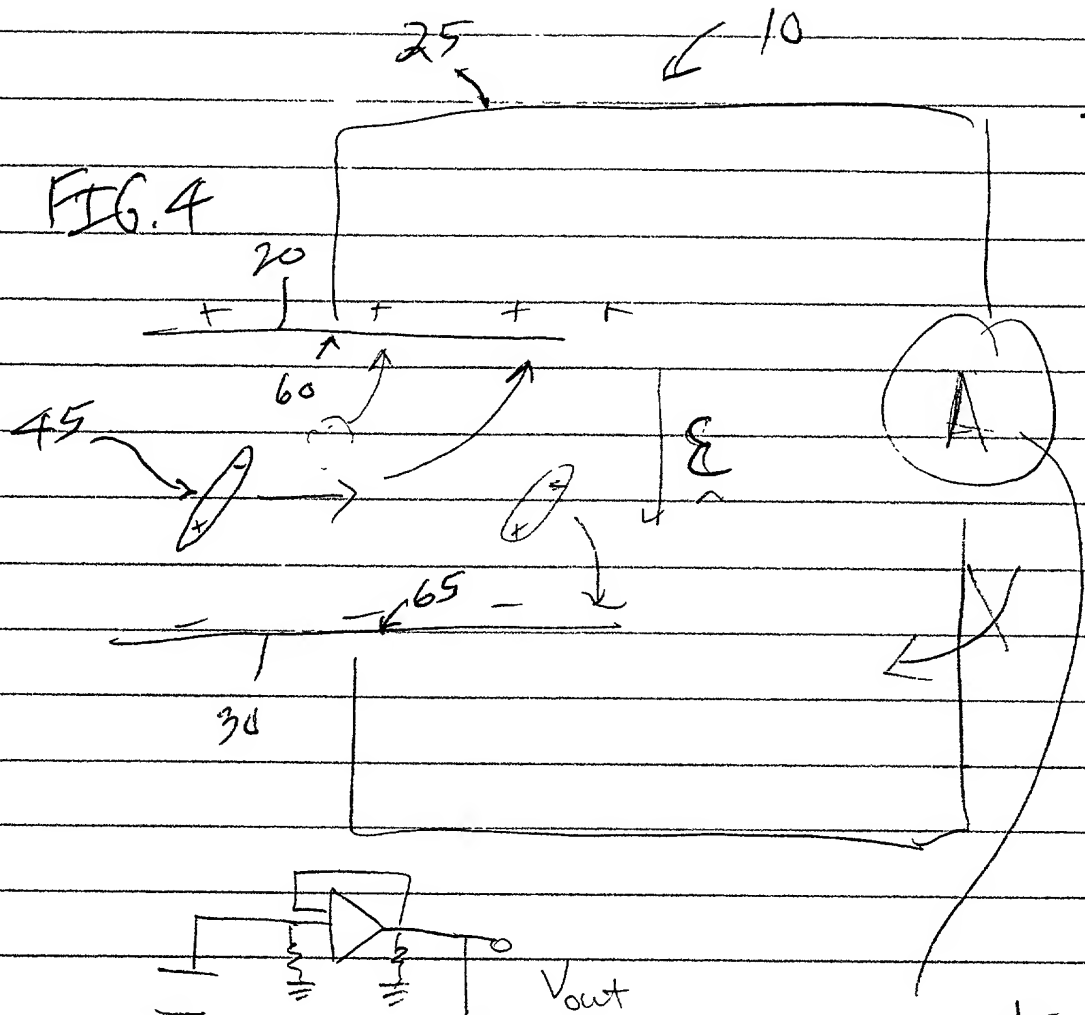 25
10
FIG. 4
20
+ + + +
60
45
-
+
ε
+
A
65
- - -
30
Vout